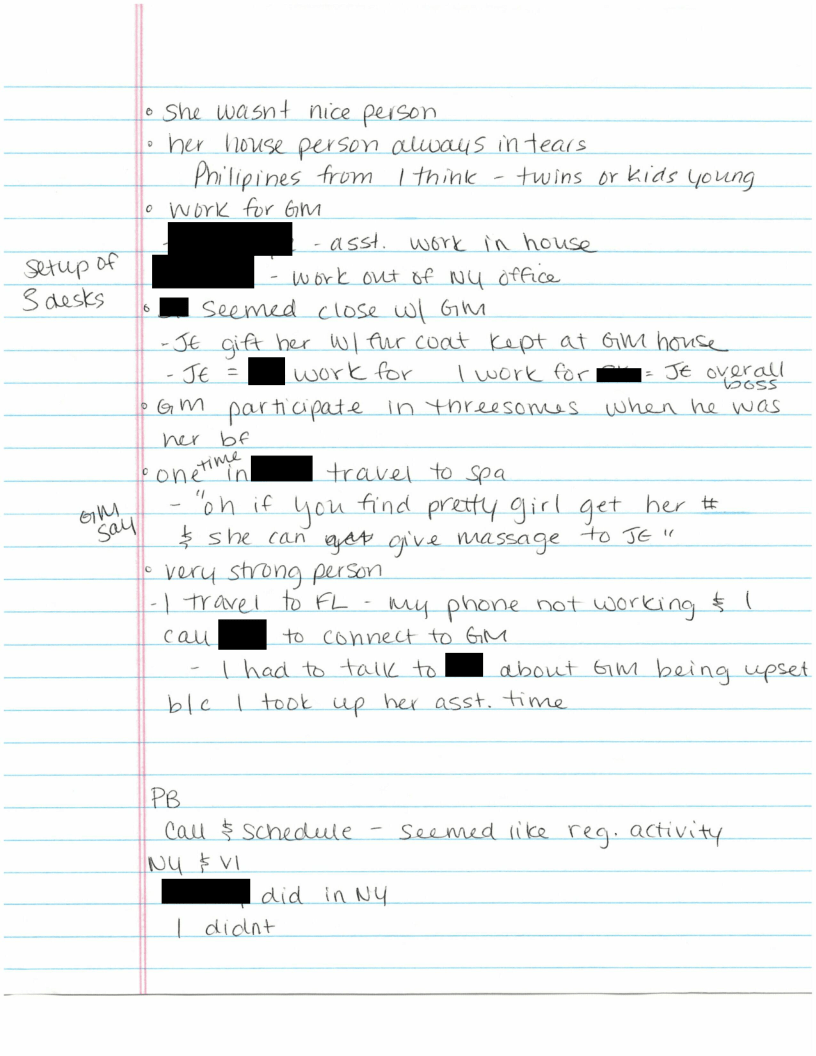 ° She wasnt nice person
° her house person always in tears
Philipines from I think - twins or kids young
° work for GM
- - asst. work in house
setup of
3 desks
- work out of NY office
° seemed close w/ GM
- JE gift her w/ fur coat kept at GM house
- JE = work for I work for = JE overall
boss
° GM participate in threesomes when he was
her bf
° one time in travel to spa
GM
say
- "oh if you find pretty girl get her #
& she can get give massage to JE"
° very strong person
- I travel to FL - my phone not working & I
call to connect to GM
- I had to talk to about GM being upset
b/c I took up her asst. time
PB
Call & schedule - seemed like reg. activity
NY & VI
did in NY
I didnt